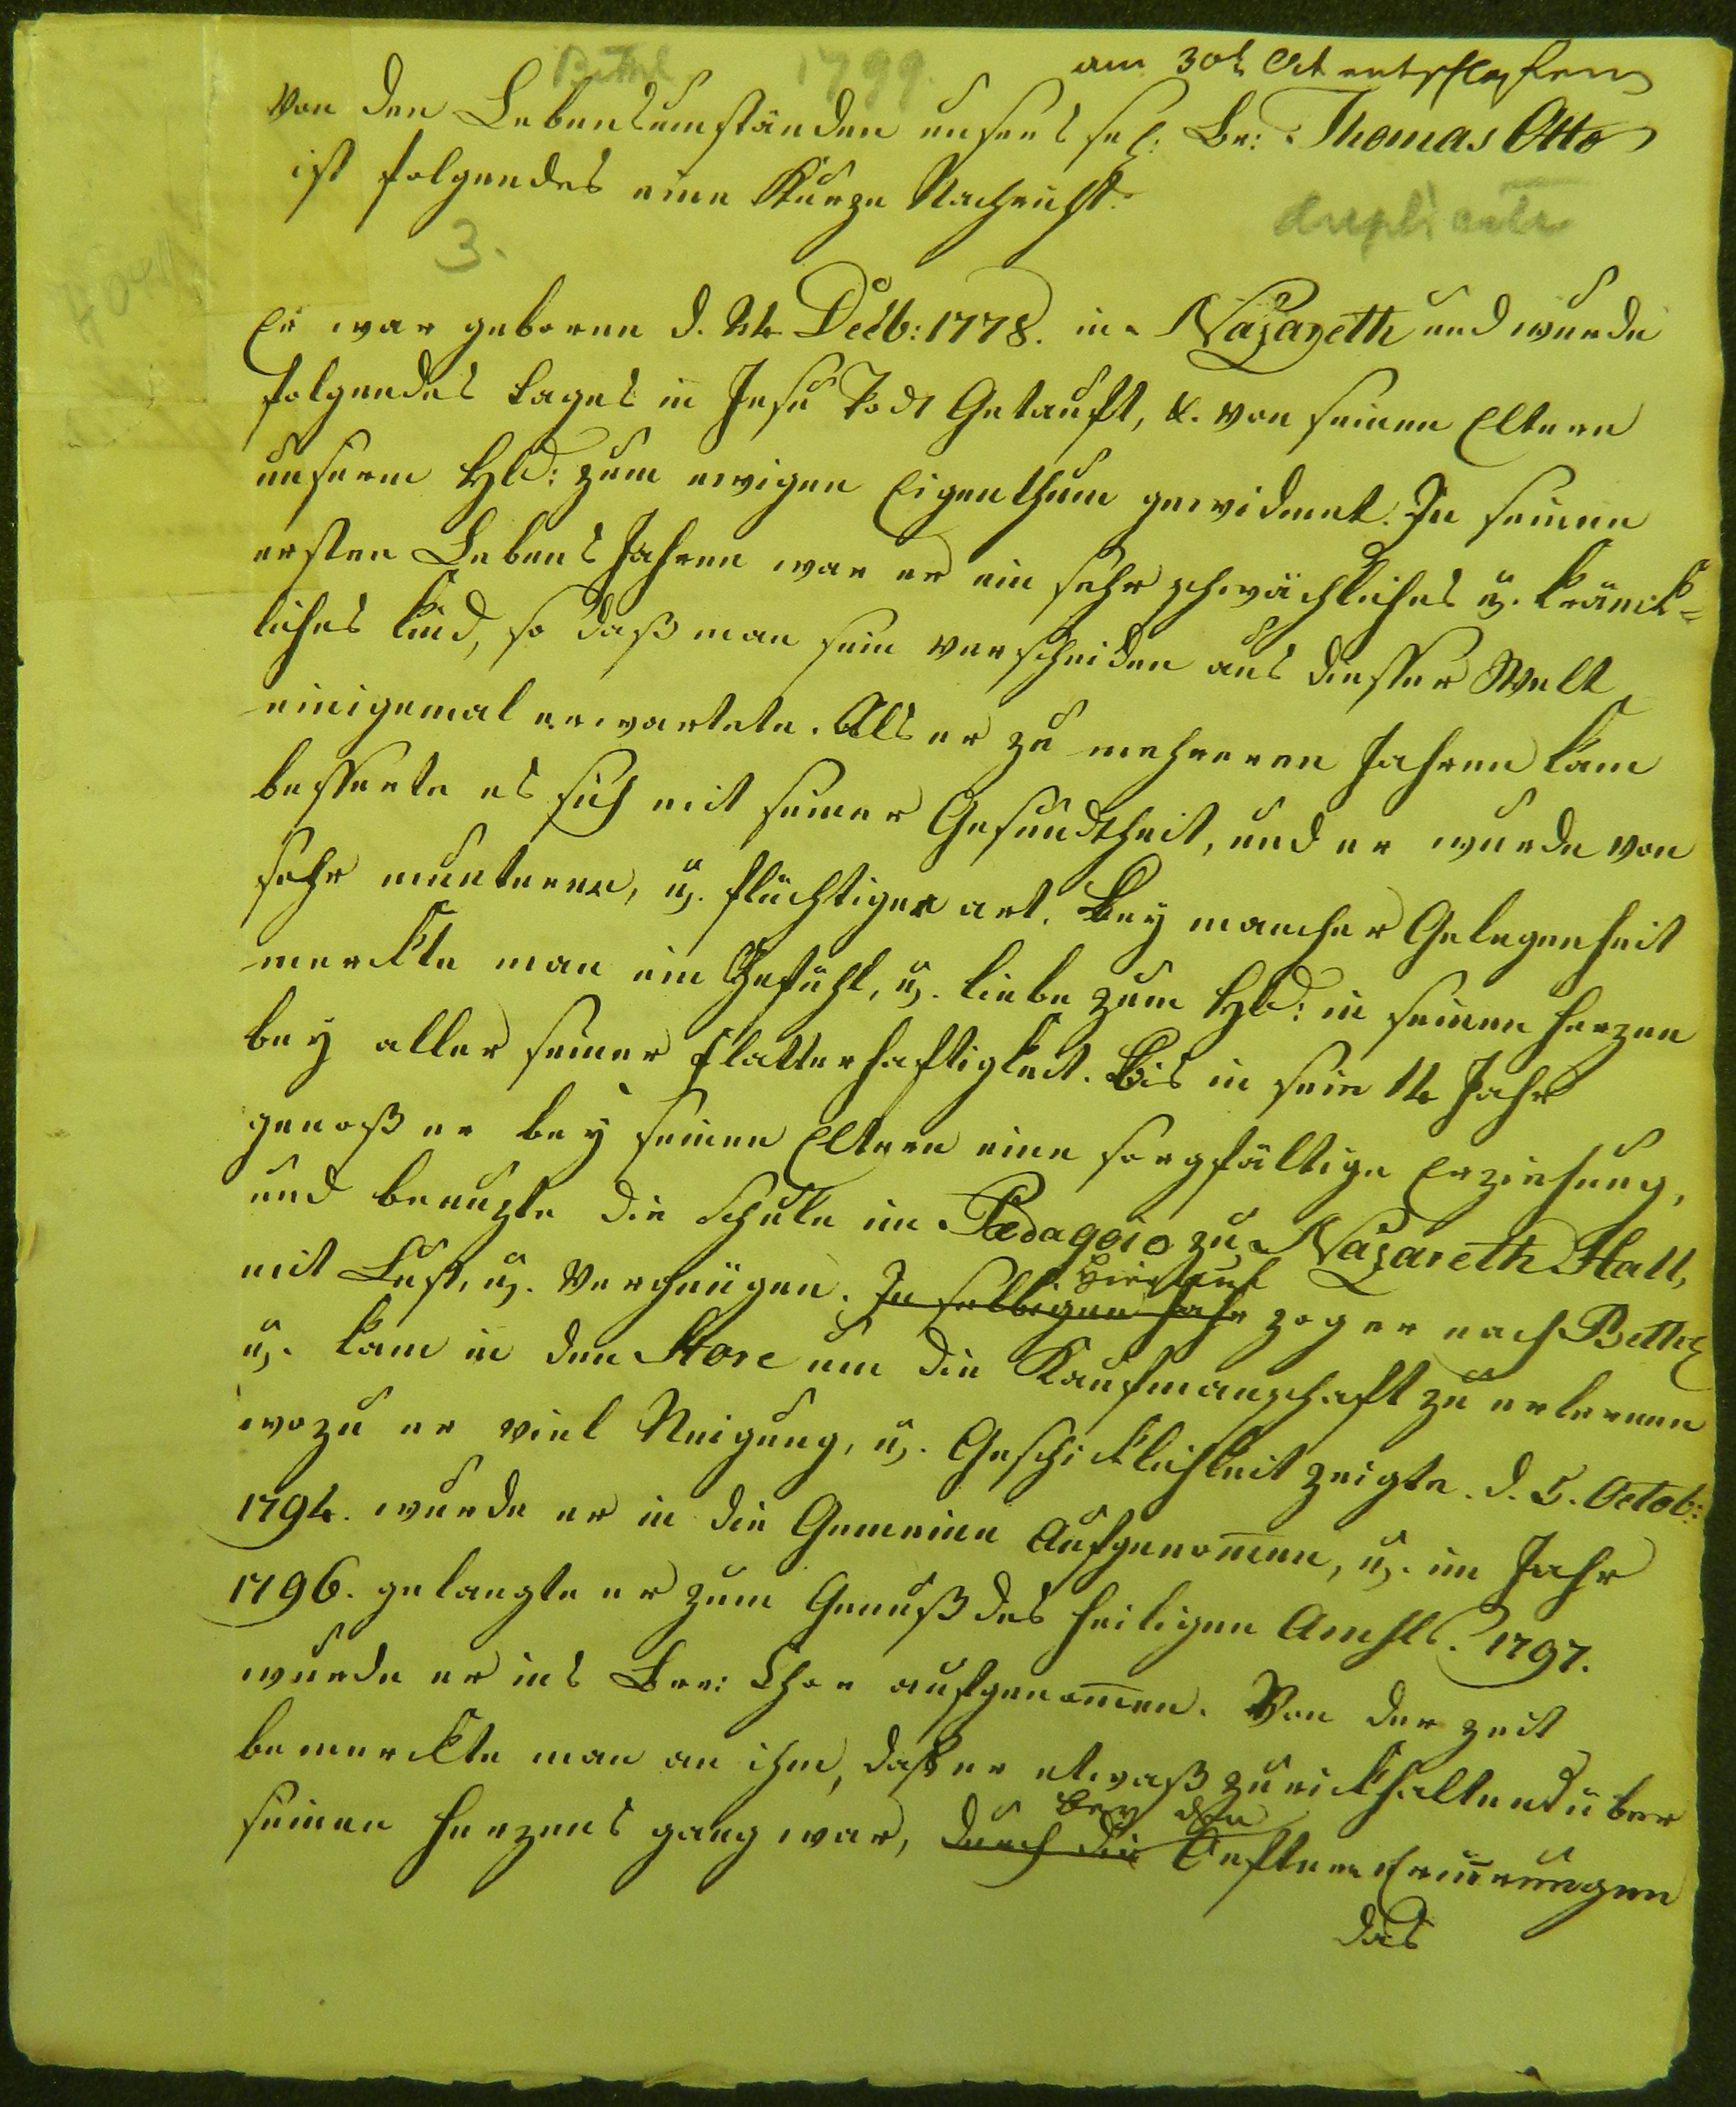 Bethl 1799. am 30t Oct entschlafenen
Von den Lebensumständen unsers sel: Br: Thomas Otto
ist folgendes eine Kurze Nachricht.
duplicate
3.
Er war geboren d. 24 Decb: 1778. in Nazareth und wurde
folgendes tages in Jesu Todt Getauft, &. von seinen Eltern
unserm Hld: zum ewigen Eigenthum gewidmet. In seinen
ersten Lebens Jahren war er ein sehr schwächliches u. kränck=
liches kind, so daß man sein verscheiden aus diesser Welt
einigemal erwartete. Als er zu mehreren Jahren kam
besserte es sich mit seiner Gesundtheit, und er wurde von
sehr munterer, u. flüchtiger art. Bey mancher Gelegenheit
merckte man ein Gefühl, u. liebe zum Hld: in seinen herzen
bey aller seiner flatterhaftigkeit. Bis in sein 14 Jahr
genoß er bey seinen Eltern eine sorgfältige Erziehung,
und benuzte die schule im Pædagogio zu Nazareth Hall,
mit Lust, u. Vergnügen. In selbigen Jahr zog er nach Bethl
Hierauf
u. kam in den Store um die Kaufmanschaft zu erlernen
wozu er viel Neigung, u. Geschicklichkeit zeigte. d. 5. Octob:
1794. wurde er in die Gemeine Aufgenom̅en, u. im Jahr
1796. gelangte er zum Genuß des heiligen Amhls. 1797.
wurde er ins Brr: Chor aufgenom̅en. Von der zeit
bemerckte man an ihm, daß er etwaß zurickhaltend über
seinen herzens gang war, durch die Oeftern Erin̅erungen
bey den
das